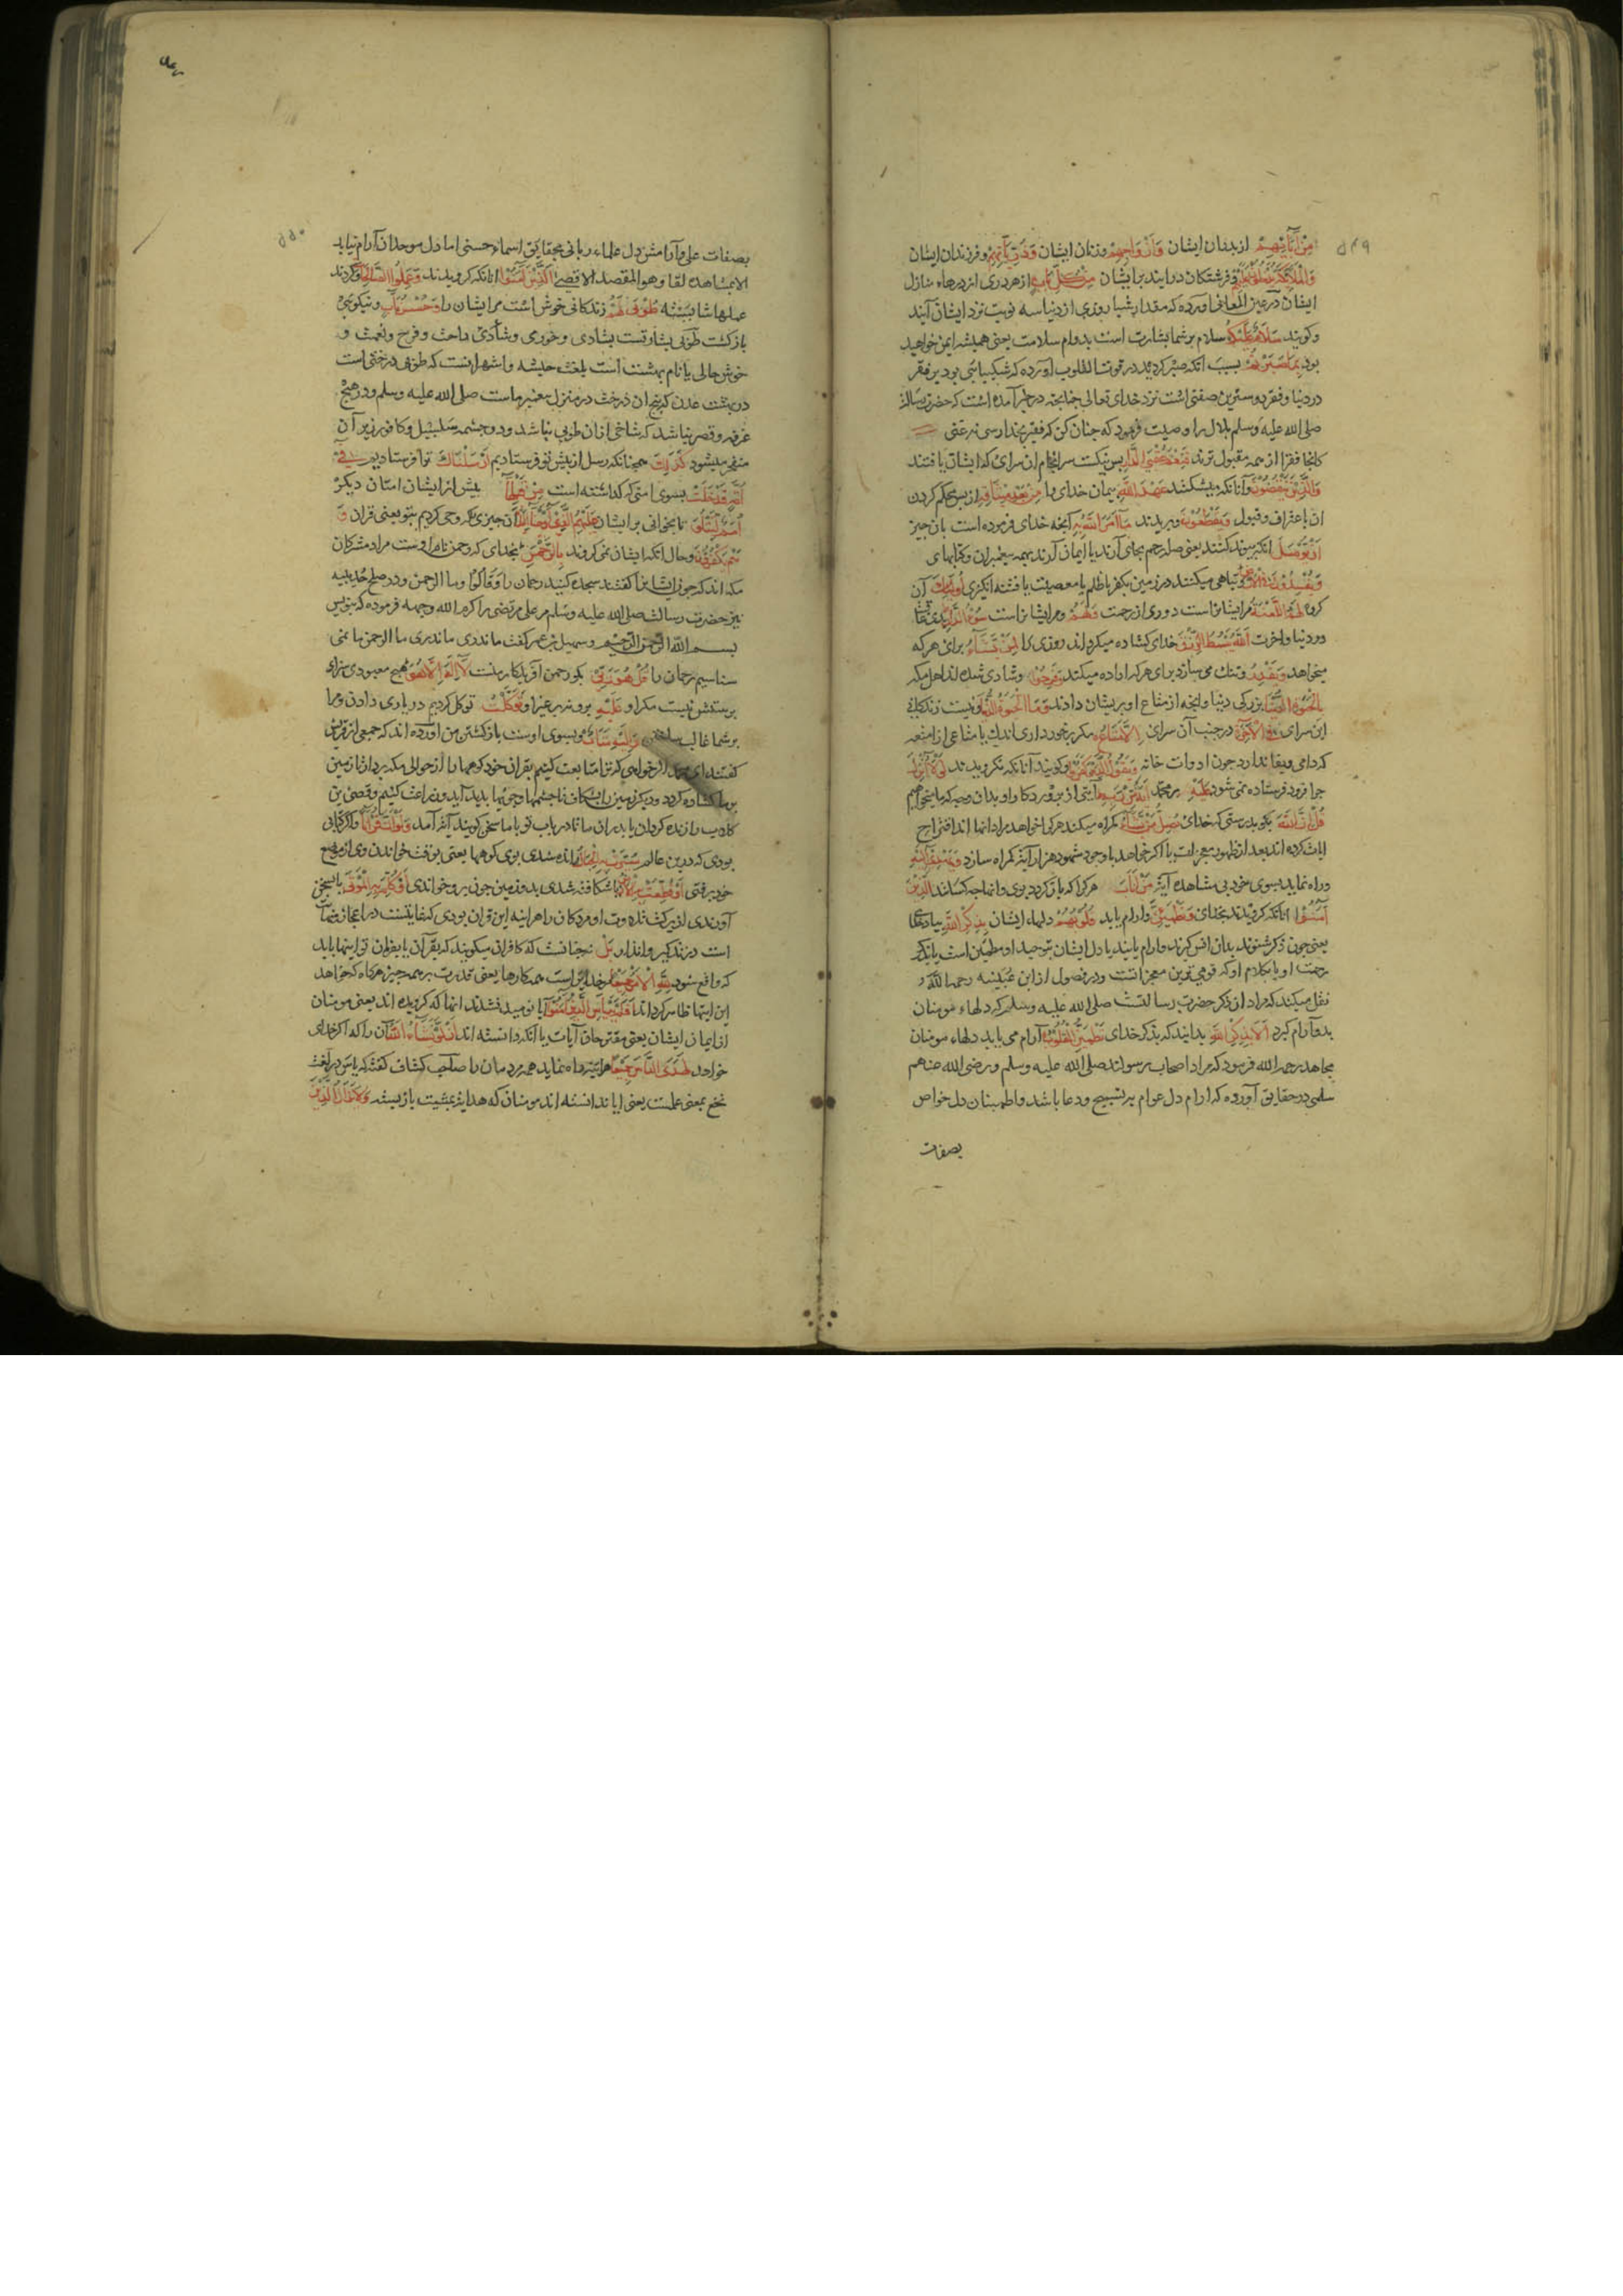 ۵۴۹
مِنْ اٰبَآئِهِمْ از پدران ایشان وَاَزْوَاجِهِمْ وزنان ایشان وَذُرِّيَّاتِهِمْ وفرزندان ایشان
وَالْمَلٰٓئِكَةُ يَدْخُلُوْنَ عَلَيْهِمْ وفرشتکان درایند برایشان مِنْ كُلِّ بَابٍ از هر دری از درهاء منازل
ایشان در عین المعانی اورده که مقدار شبا روزی از دنیا سه نوبت نزد ایشان آیند
وکویند سَلَامٌ عَلَيْكُمْ سلام بر شما بشارت است بدوام سلامت یعنی همیشه ایمن خواهید
بود بِمَا صَبَرْتُمْ بسبب انکه صبر کردید در قوت القلوب آورده که شکیبایی بودبر فقر
در دنیا وفقر دوسترین صفتی است نزد خدای تعالی جنانجه در خبر آمده است که حضرت رسالة
صلی الله علیه وسلم بلال را وصیت فرمود که جنان کن که فقیر بخدا رسی نه غنی
کانجا فقرا از همه مقبول ترند فَنِعْمَ عُقْبَى الدَّارِ بس نیکست سرانجام ان سرای که ایشان یافتند
وَالَّذِيْنَ يَنْقُضُوْنَ وآنانکه میشکنند عَهْدَ اللّٰهِ بیمان خدای را مِنْ بَعْدِ مِيْثَاقِهٖ از بس محکم کردن
ان باعتراف وقبول وَيَقْطَعُوْنَ ومیبرند مَآ اَمَرَ اللّٰهُ بِهٖ آنجه خدای فرموده است بان جیز
اَنْ يُوْصَلَ انکه بیوند کنند یعنی صله رحم بجای آرند یا ایمان آرند بهمه بیغمبران وکتابهای
وَيُفْسِدُوْنَ فِي الْاَرْضِ وتباهی میکنند در زمین بکفر یا ظلم یا معصیت یا فتنه انکیزی اُولٰٓئِكَ آن
کروه لَهُمُ اللَّعْنَةُ مر ایشانراست دوری از رحمت وَلَهُمْ ومر ایشانراست سُوْٓءُ الدَّارِ
در دنیا واخرت اَللّٰهُ يَبْسُطُ الرِّزْقَ خدای کشاده میکرداند روزی را لِمَنْ يَّشَآءُ برای هر که
میخواهد وَيَقْدِرُ وتنك می سازد برای هر که اراده میکند وَفَرِحُوْا وشادی شدند اهل مکه
بِالْحَيٰوةِ الدُّنْيَا بزندکی دنیا وانجه از متاع او بدیشان دادند وَمَا الْحَيٰوةُ الدُّنْيَا ونیست زندکانی
این سرای فِي الْاٰخِرَةِ در جنب آن سرای اِلَّا مَتَاعٌ مکر برخورداری اندك یا متاعی از امتعه
که دامی وبقا ندارد جون ادوات خانه وَيَقُوْلُ الَّذِيْنَ كَفَرُوْا وکویند آنانکه نکرویدند لَوْلَآ اُنْزِلَ
جرا فرود فرستاده نمی شود عَلَيْهِ بر محمد اٰيَةٌ مِّنْ رَّبِّهٖ ایتی از بروردکار او بدان وجه که ما میخواهیم
قُلْ اِنَّ اللّٰهَ بکو بدرستی که خدای يُضِلُّ مَنْ يَّشَآءُ کمراه میکند هر کرا خواهد مراد انها اند که اقتراح
ایات کرده اند بعد از ظهور معجزات یا اکر خواهد باوجود شهود هزار آیة کمراه سازد وَيَهْدِيْٓ اِلَيْهِ
وراه نماید بسوی خود بی مشاهده آیة مَنْ اَنَابَ هر کرا که باز کردد بوی وانها جه کسانند اَلَّذِيْنَ
اٰمَنُوْا انانکه کرویدند بخدای وَتَطْمَئِنُّ وارام یابد قُلُوْبُهُمْ دلهاء ایشان بِذِكْرِ اللّٰهِ بیاد خدا
یعنی جون ذکر شنوند بدان انس کیرند وارام یابند یا دل ایشان بتوحید او مطمئن است یا بذکر
رحمت او یا بکلام او که قوی ترین معجزاتست ودر فصول از ابن عیینه رحمه الله
نقل میکند که مراد از ذکر حضرت رسالتست صلی الله علیه وسلم که دلهاء مومنان
بدو آرام کیرد اَلَا بِذِكْرِ اللّٰهِ بدانید که بذکر خدای تَطْمَئِنُّ الْقُلُوْبُ آرام می یابد دلهاء مومنان
مجاهد رحمه الله فرمود که مراد اصحاب رسولند صلی الله علیه وسلم ورضی الله عنهم
سلمی در حقایق آورده که ارام دل عوام بر تسبیح ودعا باشد واطمینان دل خواص
بصفات
۵۵۰
بصفات علی وآرامش دل علماء ربانی بحقایق اسماء حسنی اما دل موحدان آرام نیابد
الا بمشاهده لقا وهو المقصد الاقصی اَلَّذِيْنَ اٰمَنُوْا انانکه کرویدند وَعَمِلُوا الصّٰلِحٰتِ وکردند
عملهاء شایسته طُوْبٰى لَهُمْ زندکانی خوش است مر ایشان را وَحُسْنُ مَاٰبٍ ونیکویی
بازکشت طوبی بشارتست بشادی وخرمی وشادی راحت وفرح ونعمت و
خوش حالی یا نام بهشت است بلغت حبشه واشهر انست که طوبی درختی است
در بهشت عدن که بیخ ان درخت در منزل بیغمبر ماست صلی الله علیه وسلم ودر هیج
غرفه وقصر نباشد که شاخی ازان طوبی نباشد ودو جشمه سلسبیل وکافور زیر آن
منفجر میشود كَذٰلِكَ همجنانکه رسل از بیش تو فرستادیم اَرْسَلْنٰكَ ترا فرستادیم فِيْٓ
اُمَّةٍ قَدْ خَلَتْ بسوی امتی که کذاشته است مِنْ قَبْلِهَآ بیش از ایشان امتان دیکر
اُمَمٌ لِّتَتْلُوَا تا بخوانی برایشان عَلَيْهِمُ الَّذِيْٓ اَوْحَيْنَآ اِلَيْكَ آن جیزی که وحی کردیم بتو یعنی قران وَ
هُمْ يَكْفُرُوْنَ وحال انکه ایشان نمی کروند بِالرَّحْمٰنِ بخدای که رحمن نام اوست مراد مشرکان
مکه اند که جون ایشانرا کفتند سجده کنید رحمان را وَقَالُوْا وما الرحمن ودر صلح حدیبیه
نیز حضرت رسالت صلی الله علیه وسلم مر علی مرتضی را کرم الله وجهه فرموده که بنویس
بسم الله الرحمن الرحیم وسهیل بن عمر کفت ما ندری ما ندری ما الرحمن ما نمی
شناسیم رحمان را قُلْ هُوَ رَبِّيْ بکو رحمن آفریدکار منست لَآ اِلٰهَ اِلَّا هُوَ هیج معبودی سزای
برستش نیست مکر او عَلَيْهِ برو نه بر غیر او تَوَكَّلْتُ توکل کردیم در یاری دادن مرا
بر شما غالب ساختن وَاِلَيْهِ مَتَابِ وبسوی اوست بازکشتن من آورده اند که جمعی از قریش
کفتند ای محمد اکر خواهی که ترا متابعت کنیم بقران خود کوهها را از حوالی مکه بردار تا زمین
بر ما کشاده کردد ودیکر زمین را بشکاف تا جشمها وجویها بدید آید وزراعت کنیم وقصی بن
کلاب را زنده کردان با بدران ما تا در باب تو با ما سخن کویند آیة آمد وَلَوْ اَنَّ قُرْاٰنًا واکر قرانی
بودی که درین عالم سُيِّرَتْ بِهِ الْجِبَالُ رانده شدی بوی کوهها یعنی بوقت خواندن وی از موضع
خود برفتی اَوْ قُطِّعَتْ بِهِ الْاَرْضُ یا شکافته شدی بدو زمین جون برو خواندی اَوْ كُلِّمَ بِهِ الْمَوْتٰى یا بسخن
آوردندی از برکت تلاوت او مردکان را هراینه این قران بودی که غایتست در اعجاز ونهایت
است در تذکیر وانذار بَلْ نه جنانست که کافران میکویند که بقرآن یا بفرمان تو اینها باید
که واقع شود لِلّٰهِ الْاَمْرُ جَمِيْعًا خدایراست همه کارها یعنی قدرت بر همه جیز هرکاه که خواهد
این ایتها ظاهر کرداند اَفَلَمْ يَايْـَٔسِ الَّذِيْنَ اٰمَنُوْٓا آیا نومید نشدند انها که کرویده اند یعنی مومنان
از ایمان ایشان یعنی مقترحان آیات با آنکه دانسته اند اَنْ لَّوْ يَشَآءُ اللّٰهُ آن را که اکر خدای
خواهد لَهَدَى النَّاسَ جَمِيْعًا هراینه راه نماید همه مردمان را صاحب کشاف کفته که یأس در لغت
نخع بمعنی علمست یعنی ایا ندانسته اند مومنان که هدایة بمشیت بازبسته وَلَا يَزَالُ الَّذِيْنَ